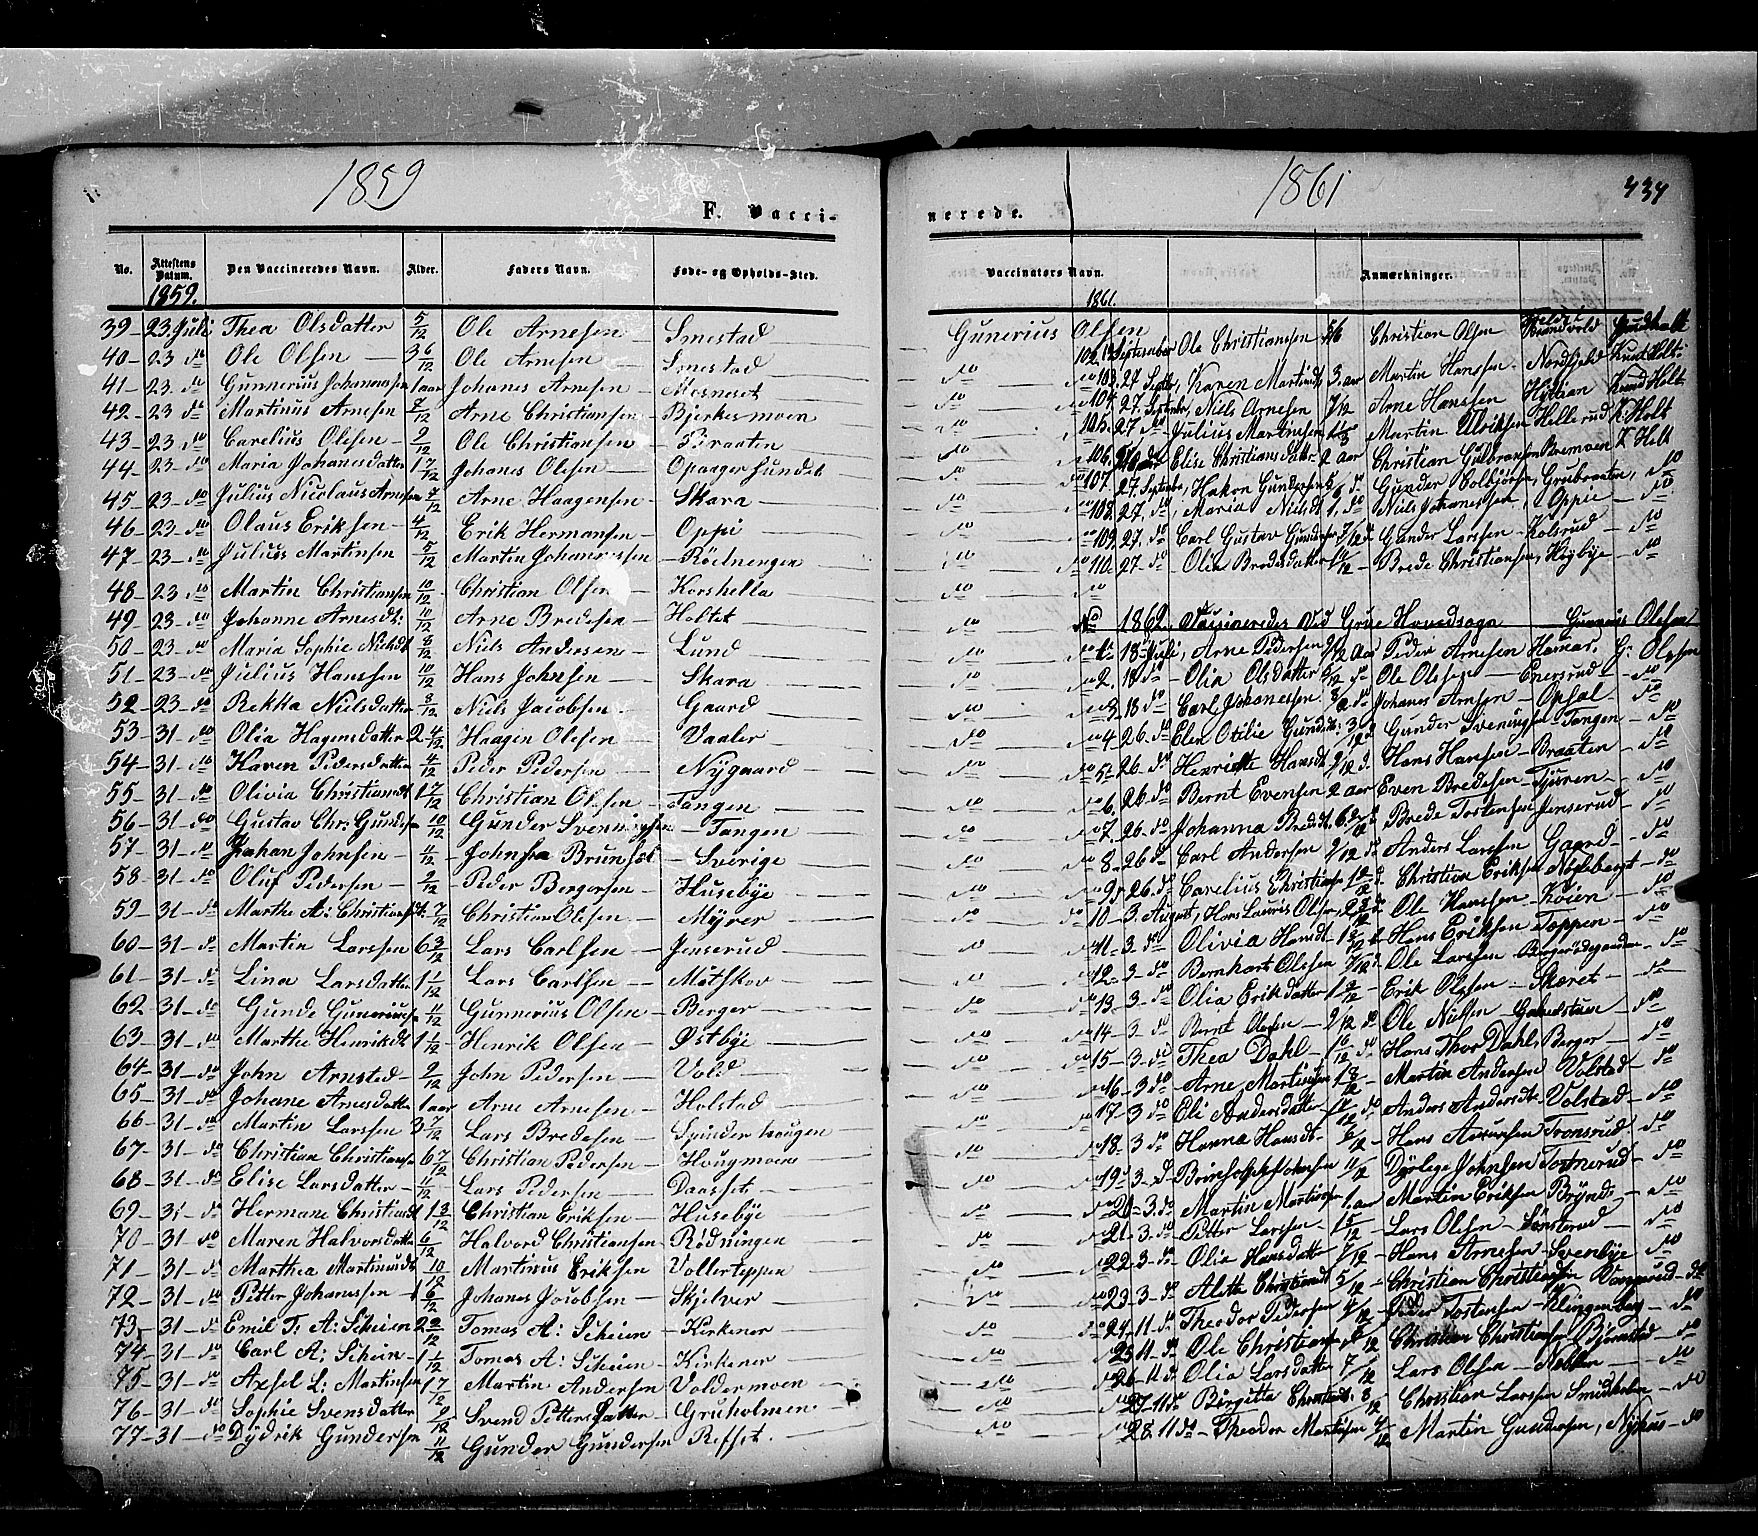 1859
1861
434
F. Vacci-
nerede.
No.
Attestens Datum.
Den Vaccineredes Navn.
Alder.
Faders Navn.
Føde- og Opholds-Sted.
Vaccinators Navn.
Anmærkninger.
1859.
39 - 23 Juli Thea Olsdatter 5/12 Ole Arnesen Smestad
40 - 23 do Ole Olsen 3 6/12 Ole Arnesen Smestad
41 - 23 do Gunnerius Johannessen 1 aar Johanes Arnesen Mosneset
42 - 23 do Martinus Arnesen 7/12 Arne Christiansen Bjerkesmoen
43 - 23 do Carelius Olesen 2/12 Ole Christiansen Braaten
44 - 23 do Maria Johanesdatter 1 7/12 Johanes Olesen Opaagerhundeb
45 - 23 do Julius Nicolaus Arnesen 7/12 Arne Haagensen Skara
46 - 23 do Olaus Eriksen 4/12 Erik Hermansen Oppi
47 - 23 do Julius Martinsen 5/12 Martin Johannessen Rödnengen
48 - 23 do Martin Christiansen 10/12 Christian Olsen Korshella
49 - 23 do Johanne Arnesdt: 10/12 Arne Bredesen Holtet
50 - 23 do Maria Sophie Nielsdt 8/12 Niels Andersen Lund
51 - 23 do Julius Hanssen 10/12 Hans Johnsen Skara
52 - 23 do Rekka Nielsdatter 8/12 Niels Jacobsen Gaard
53 - 31 do Olia Hagensdatter 2 4/12 Haagen Olesen Vaaler
54 - 31 do Karen Pedersdatter 4/12 Peder Pedersen Nygaard
55 - 31 do Olivia Christiansdt 1 7/12 Christian Olsen Tangen
56 - 31 do Gustav Chr: Gundersen 10/12 Gunder Svenningsen Tangen
57 - 31 do Johan Johnsen 11/12 Johnsen Sverige
58 - 31 do Oluf Pedersen 2/12 Peder Bergersen Husebye
59 - 31 do Marthe A: Christiansdt 7/12 Christian Olesen Myrer
60 - 31 do Martin Larssen 6 3/12 Lars Carlsen Jenserud
61 - 31 do Lina Larsdatter 1 1/12 Lars Carlsen Motskov
62 - 31 do Gunde Gunneriusen 11/12 Gunnerius Olsen Berger
63 - 31 do Marthe Henriksdt 1 1/12 Henrik Olsen Østbye
64 - 31 do John Arnsted 2/12 John Pedersen Vold
65 - 31 do Johane Arnesdatter 1 aar Arne Arnesen Holstad
66 - 31 do Martin Larssen 3 7/12 Lars Bredesen Spinderhaugen
67 - 31 do Christian Christiansen 6 7/12 Christian Pedersen Hougmoen
68 - 31 do Elise Larsdatter 11/12 Lars Pedersen Daaset
69 - 31 do Hermane Christiansdt 1 3/12 Christian Eriksen Husebye
70 - 31 do Maren Halvorsdatter 6/12 Halvord Christiansen Rødningen
71 - 31 do Marthea Martinusdt 10/12 Martinus Eriksen Vollerteppen
72 - 31 do Petter Johanessen 1 6/12 Johanes Jacobsen Skjelver
73 - 31 do Emil T: A: Scheien 2 2/12 Tomas A: Scheien Kirkener
74 - 31 do Carl A: Schein 1 1/12 Tomas A: Scheien Kirkener
75 - 31 do Axsel L: Martinsen 1 7/12 Martin Andersen Voldermoen
76 - 31 do Sophie Svensdatter 9/12 Svend Pettersdatter Gruholmen
77 - 31 do Dydrik Gundersen 11/12 Gunder Gundersen Refset
1861.
Gunerius Olsen
102. 12 September Ole Christiansen 5/6 Christian Olsen Bundvold
do 103. 27 Septbr, Karen Martinsdt 3 aar Martin Hanssen Nordhjeld Knud Holt
do 104. 27. September, Niels Arnesen 7/12 Arne Hanssen Knud Holt
do 105. 27 do Julius Martinesen Martin Ulriksen Hellerud K Holt
do 106. Elise Christiansdatter 2 aar Christian Gulbransen Bremoen K Holt
107. 27. September, Hakon Gundersen do Gunder Colbjörnsen, Grubraaten, do
do 108. 27. do Maria Nielsdt 1. do Niels Johanessen, Oppie do
do 109. 27. do Carl Gustav Gundersen 7/12 d Gunder Larssen Kolsrud do
do 110. 27 do Olia Bredesdatter Brede Christiansen, Høybye do
No 1862. Vaccineredes Ved Grue Hovedsogn Gunnerius Olsen
do 1. 18 Juli, Arne Pedersen Peder Arnesen Hamar, G: Olssen
do 2. 18 do Olia Olsdatter Ole Olssen Enersrud do
do 3. 18 do Carl Johanessen Johanes Arnesen Opsal do
do 4. 26. do Elen Otilie Gundersdt Gunder Sveningsen Tangen do
do 5. 26. do Henriette Hansdt Hans Hansen Braaten do
do 6. 26. do Bernt Evensen 2 aar Even Bredesen Tjuren do
do 7. 26. do Johanna Bredesdt Brede Tostensen Jenserud do
do 8. 26 do Carl Andersen Anders Larssen Gaard do
do 9. 26. do Carelius Christiansen Christian Eriksen do
do 10 - 3. August, Hans Lauris Olsen, Ole Hanssen Køien do
do 11. 3. do Olivia Hansdt Hans Eriksen Toppen do
do 12. 3 do Bernhart Olssen Ole Larssen do
do 13. 3 do Olia Eriksdatter Erik Olssen Skæret do
do 14. 3 do Bernt Olesen Ole Nielsen do
do 15. 3. do Thea Dahl Hans Thor Dahl Berger do
do 16. 3 do Arne Martinsen 1 8/12 Martin Andersen Volstad do
do 17 3 do Oli Andersdatter Anders Andersdt Volstad do
do 18. 3 do Hanna Hansdt Hans Tronsrud do
do 19. 3 d Johnsen 11/12 Dyrlege Johnsen Tostnerud do
do 20. 3. do Martin Martinsen 1. aar Martin Eriksen Brynd do
do 21. 3. do Petter Larssen 1 5/12 Lars Olsen Sønsterud do
do 22. 3 do Olia Hansdatter Hans Arnesen Svenbye do
do 23. 3 do Alette Christiansdt 5/12 Christian Christiansen Vangerud do
do 24. 11. do Theodor Pedersen Tostensen Klingenberg do
do 25. 11. do Ole Christian Christian Christiansen Bjørnstad do
do 26. 11 do Olia Larsdatter Lars Olssen do
do 27. 11 do Birgitte Christiansdt. 8/12 Christian Larssen Smedholm do
do 28. 11 do Theodor Martinsen Martin Gundersen, Nyhus do